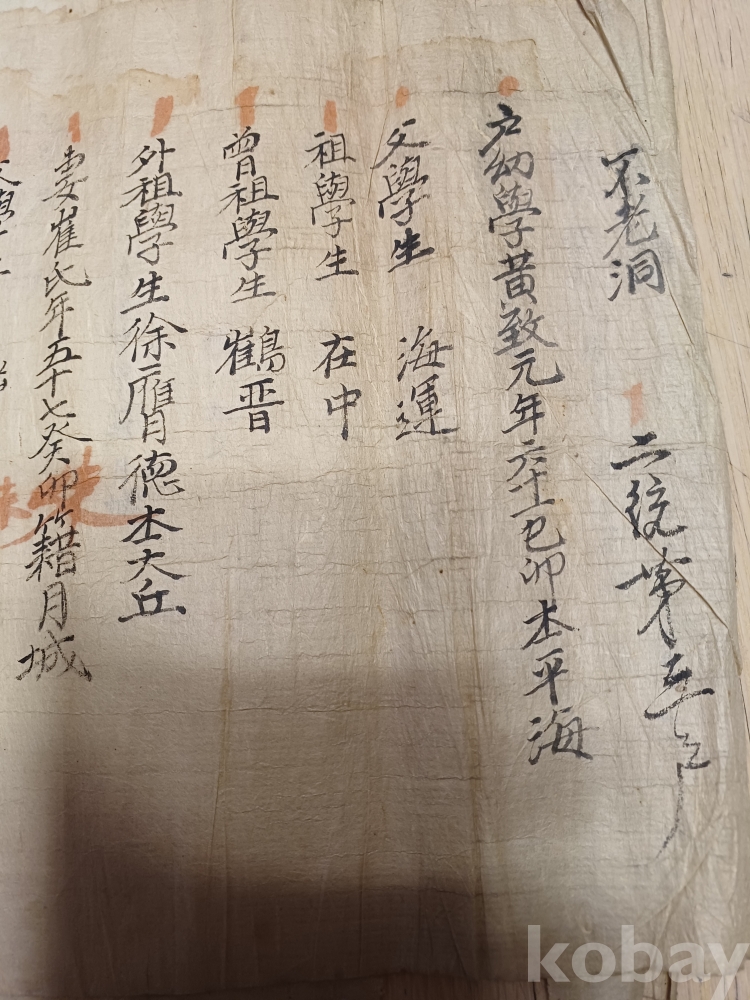 不老洞 二統第五戶
戶幼學黃致元年六十一己卯本平海
父學生 海運
祖學生 在中
曾祖學生 鶴晋
外祖學生徐膺德本大丘
妻崔氏年五十七癸卯籍月城